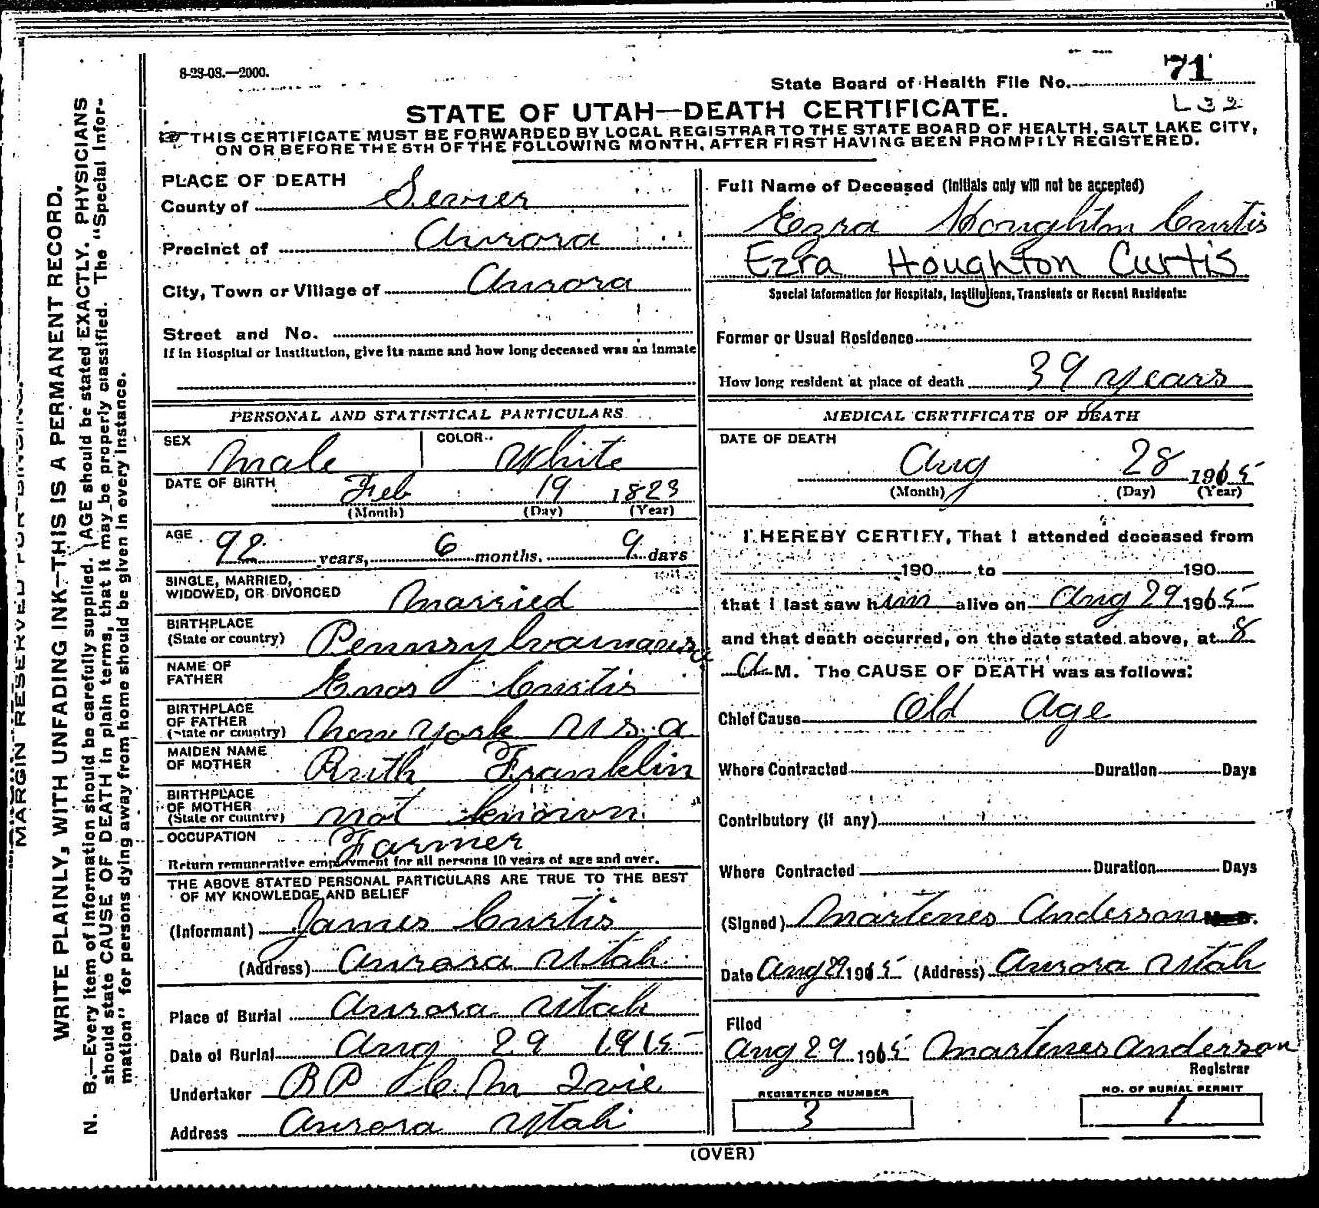 8-23-08.—2000.
State Board of Health File No. 71
L 32
STATE OF UTAH—DEATH CERTIFICATE.
THIS CERTIFICATE MUST BE FORWARDED BY LOCAL REGISTRAR TO THE STATE BOARD OF HEALTH, SALT LAKE CITY,
ON OR BEFORE THE 5TH OF THE FOLLOWING MONTH, AFTER FIRST HAVING BEEN PROMPTLY REGISTERED.
MARGIN RESERVED FOR BINDING.
WRITE PLAINLY, WITH UNFADING INK—THIS IS A PERMANENT RECORD.
N. B.—Every item of information should be carefully supplied. AGE should be stated EXACTLY. PHYSICIANS
should state CAUSE OF DEATH in plain terms, that it may be properly classified. The "Special Infor-
mation" for persons dying away from home should be given in every instance.
PLACE OF DEATH
County of Sevier
Precinct of Aurora
City, Town or Village of Aurora
Street and No.
If in Hospital or Institution, give its name and how long deceased was an Inmate
PERSONAL AND STATISTICAL PARTICULARS
SEX Male COLOR White
DATE OF BIRTH Feb 19 1823
(Month) (Day) (Year)
AGE 92 years, 6 months. 9 days
SINGLE, MARRIED,
WIDOWED, OR DIVORCED Married
BIRTHPLACE
(State or country)
NAME OF
FATHER Enos Curtis
BIRTHPLACE
OF FATHER
(State or country) New York U.S.A
MAIDEN NAME
OF MOTHER Ruth Franklin
BIRTHPLACE
OF MOTHER
(State or country) not known
OCCUPATION Farmer
Return remunerative employment for all persons 10 years of age and over.
THE ABOVE STATED PERSONAL PARTICULARS ARE TRUE TO THE BEST
OF MY KNOWLEDGE AND BELIEF
(Informant) James Curtis
(Address) Aurora Utah
Place of Burial Aurora Utah
Date of Burial Aug 29 1915
Undertaker BP Ivie
Address Aurora Utah
Full Name of Deceased (Initials only will not be accepted)
Ezra Houghton Curtis
Ezra Houghton Curtis
Special Information for Hospitals, Institutions, Transients or Recent Residents:
Former or Usual Residence
How long resident at place of death 39 years
MEDICAL CERTIFICATE OF DEATH
DATE OF DEATH
Aug 28 1915
(Month) (Day) (Year)
I HEREBY CERTIFY, That I attended deceased from
190 to 190
that I last saw him alive on Aug 29 1915
and that death occurred, on the date stated above, at 8
A M. The CAUSE OF DEATH was as follows:
Chief Cause Old Age
Where Contracted Duration Days
Contributory (if any)
Where Contracted Duration Days
(Signed) Martenes Anderson
Date Aug 29 1915 (Address) Aurora Utah
Filed
Aug 29 1915 Martenes Anderson
Registrar
REGISTERED NUMBER
3
NO. OF BURIAL PERMIT
1
(OVER)